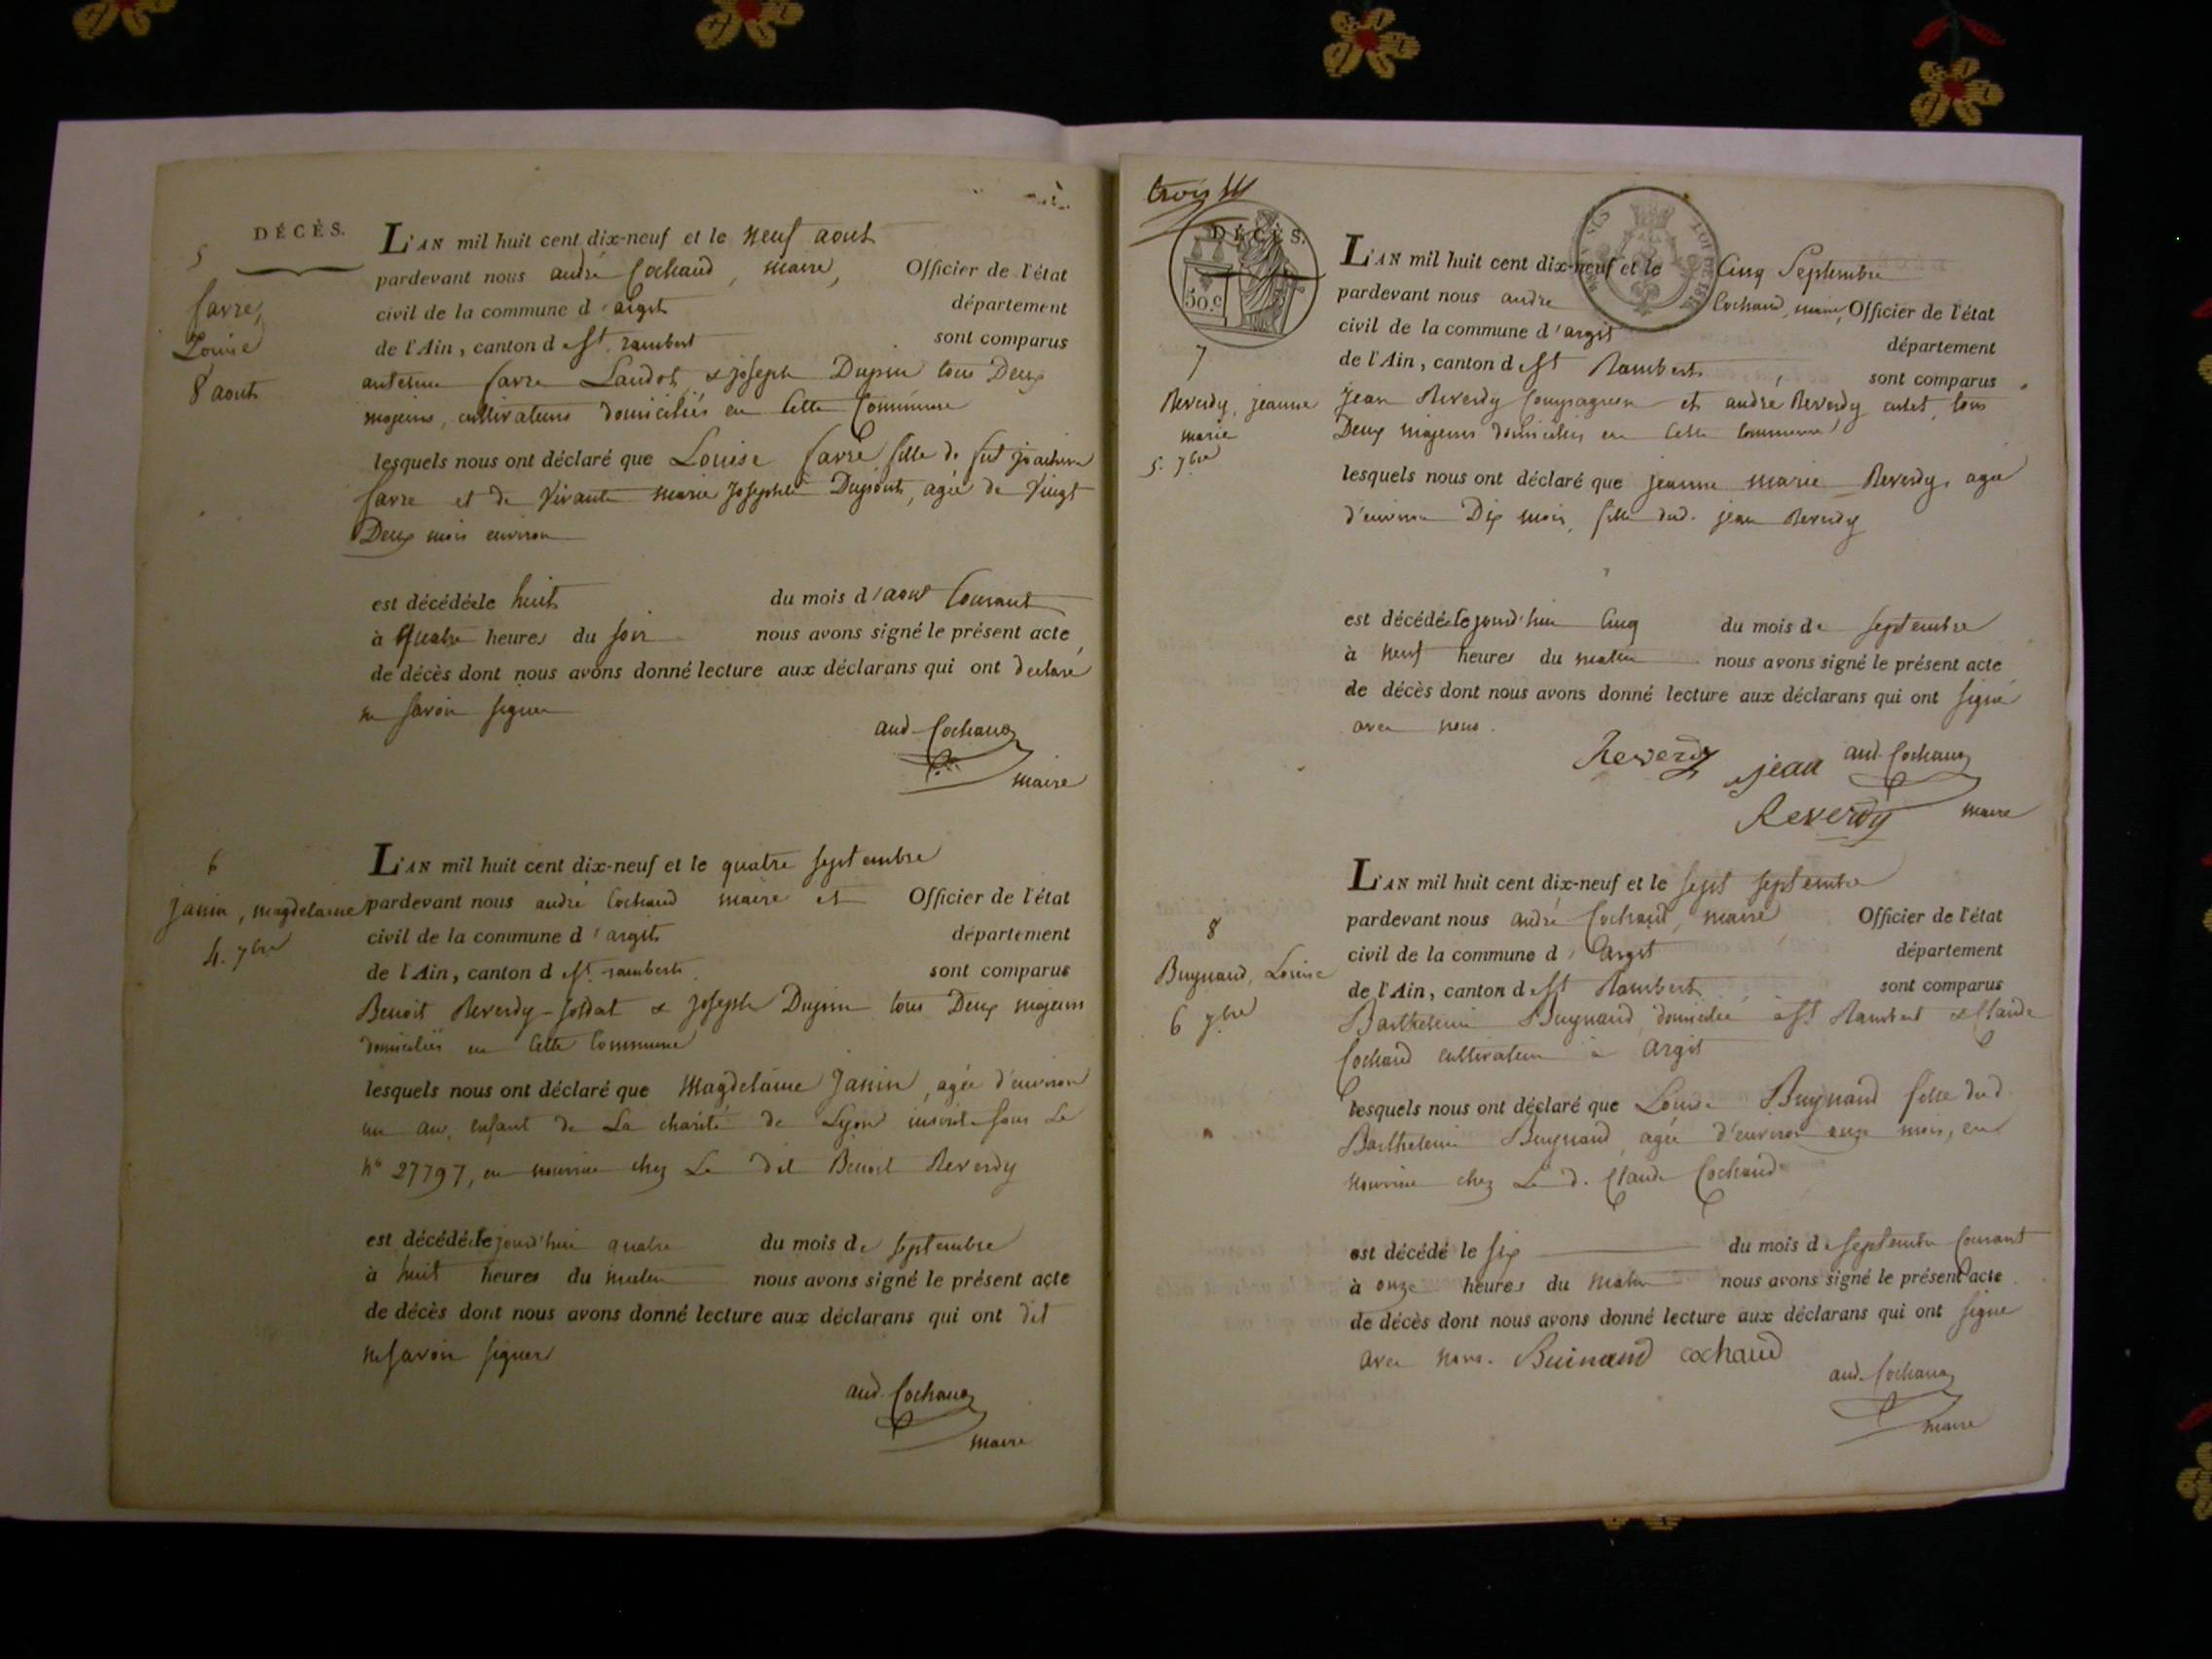 DÉCÈS.
5
favre,
Louise
8 aout
L'AN mil huit cent dix-neuf et le neuf aout
pardevant nous andré Cochaud, maire, Officier de l'état
civil de la commune d'argit département
de l'Ain, canton de St. rambert sont comparus
favre Landot & joseph Dupin tous Deux
majeurs, cultivateurs domiciliés en Cette Commune
lesquels nous ont déclaré que Louise favre fille de fut joachim
favre et de Vivante marie josephte Dupont, agée de Vingt
Deux mois environ
est décédée le huit du mois d'aout Courant
à quatre heures du soir nous avons signé le présent acte
de décès dont nous avons donné lecture aux déclarans qui ont declaré
ne savoir signer
and. Cochaud
maire
6
janin, magdelaine
4. 7bre
L'AN mil huit cent dix-neuf et le quatre septembre
pardevant nous andré Cochaud maire et Officier de l'état
civil de la commune d'argit département
de l'Ain, canton de St. rambert sont comparus
Benoit Reverdy-soldat & joseph Dupin tous Deux majeurs
domiciliés en Cette Commune
lesquels nous ont déclaré que Magdelaine Janin, agée d'environ
un an, enfant de La charité de Lyon inscrite sous Le
no 27797, en nourrice chez Le dit Benoit Reverdy
est décédée le jourd'hui quatre du mois de septembre
à huit heures du matin nous avons signé le présent acte
de décès dont nous avons donné lecture aux déclarans qui ont dit
ne savoir signer
and. Cochaud
maire
trois
DÉCÈS.
50.c
LOI DE 1816
7
Reverdy, jeanne
marie
5. 7bre
L'AN mil huit cent dix-neuf et le Cinq Septembre
pardevant nous andré Cochaud, maire, Officier de l'état
civil de la commune d'argit département
de l'Ain, canton de St Rambert sont comparus
jean Reverdy Compagnon et andré Reverdy cadet, tous
Deux majeurs domiciliés en Cette Commune
lesquels nous ont déclaré que jeanne marie Reverdy, agée
d'environ Dix mois, fille dud. jean Reverdy
est décédée le jourd'hui Cinq du mois de septembre
à neuf heures du matin nous avons signé le présent acte
de décès dont nous avons donné lecture aux déclarans qui ont signé
avec nous.
Reverdy jean and. Cochaud
Reverdy maire
8
Buynand, Louise
6 7bre
L'AN mil huit cent dix-neuf et le sept septembre
pardevant nous andré Cochaud, maire Officier de l'état
civil de la commune d'argit département
de l'Ain, canton de St Rambert sont comparus
Barthelemi Buynand domicilié à St Rambert & Claude
Cochaud cultivateur à Argit
lesquels nous ont déclaré que Louise Buynand fille dud
Barthelemi Buynand agée d'environ onze mois, en
nourrice chez Le d. Claude Cochaud
est décédé le six du mois de septembre Courant
à onze heures du matin nous avons signé le présent acte
de décès dont nous avons donné lecture aux déclarans qui ont signé
avec nous. Buinand cochaud
and. Cochaud
maire